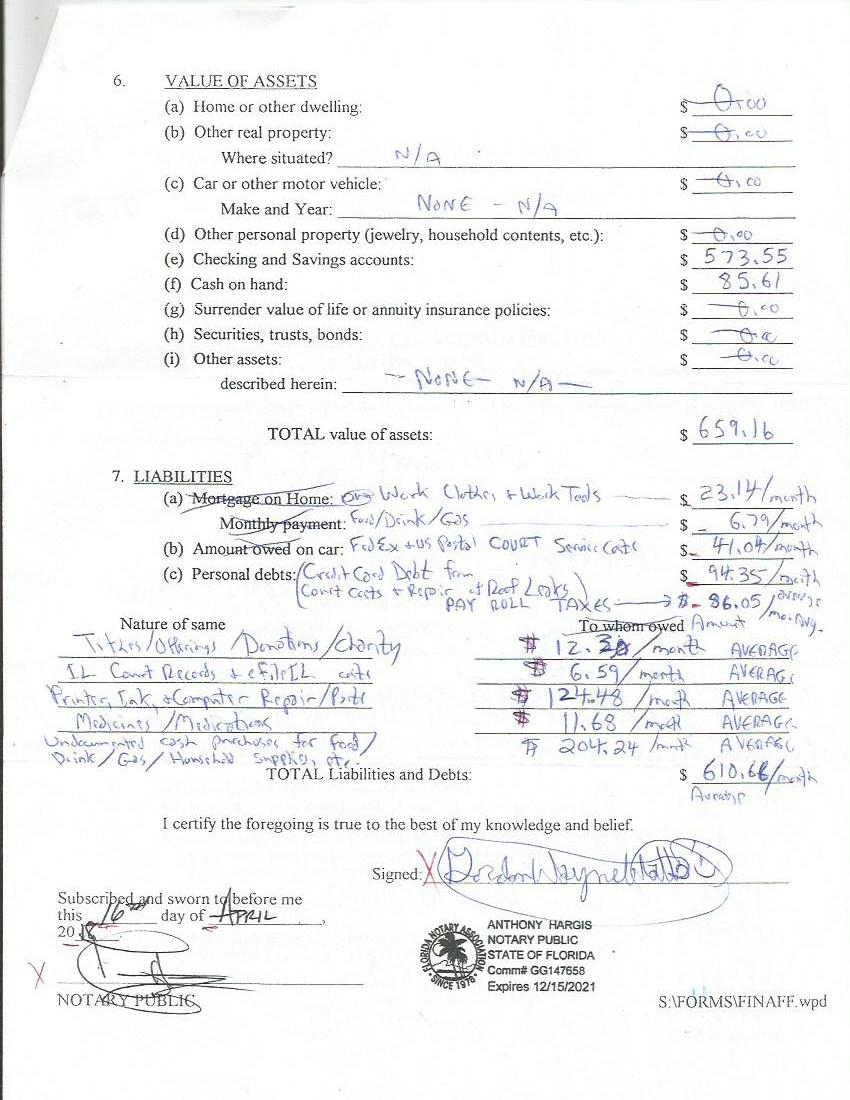 6. VALUE OF ASSETS
(a) Home or other dwelling: $ 0.00
(b) Other real property: $ 0.00
Where situated? N/A
(c) Car or other motor vehicle: $ 0.00
Make and Year: NONE - N/A
(d) Other personal property (jewelry, household contents, etc.): $ 0.00
(e) Checking and Savings accounts: $ 573.55
(f) Cash on hand: $ 85.61
(g) Surrender value of life or annuity insurance policies: $ 0.00
(h) Securities, trusts, bonds: $ 0.00
(i) Other assets: $ 0.00
described herein: - NONE - N/A -
TOTAL value of assets: $ 659.16
7. LIABILITIES
(a) Mortgage on Home: Work Clothes & Work Tools $ 23.14/month
Monthly payment: Food/Drink/Gas $ 6.79/month
(b) Amount owed on car: FedEx & US Postal COURT Service Costs $ 41.04/month
(c) Personal debts: (Credit Card Debt from $ 94.35/month
Court Costs & Repair of Roof Leaks)
PAY ROLL TAXES → $ 86.05/average mo. Avg.
Nature of same To whom owed Amount
Tithes/Offerings/Donations/Charity $ 12.38/month AVERAGE
IL Court Records & eFileIL costs $ 6.59/month AVERAGE
Printer, Ink, & Computer Repair/Parts $ 124.48/month AVERAGE
Medicines/Medications $ 11.68/month AVERAGE
Undocumented cash purchases for food/ $ 204.24/month AVERAGE
Drink/Gas/Household Supplies, etc.
TOTAL Liabilities and Debts: $ 610.66/month
Average
I certify the foregoing is true to the best of my knowledge and belief.
Signed: X Gordon Wayne Watts
Subscribed and sworn to before me
this 16th day of APRIL,
2018
X
NOTARY PUBLIC
FLORIDA NOTARY ASSOCIATION
• SINCE 1978 •
ANTHONY HARGIS
NOTARY PUBLIC
STATE OF FLORIDA
Comm# GG147658
Expires 12/15/2021
S:\FORMS\FINAFF.wpd